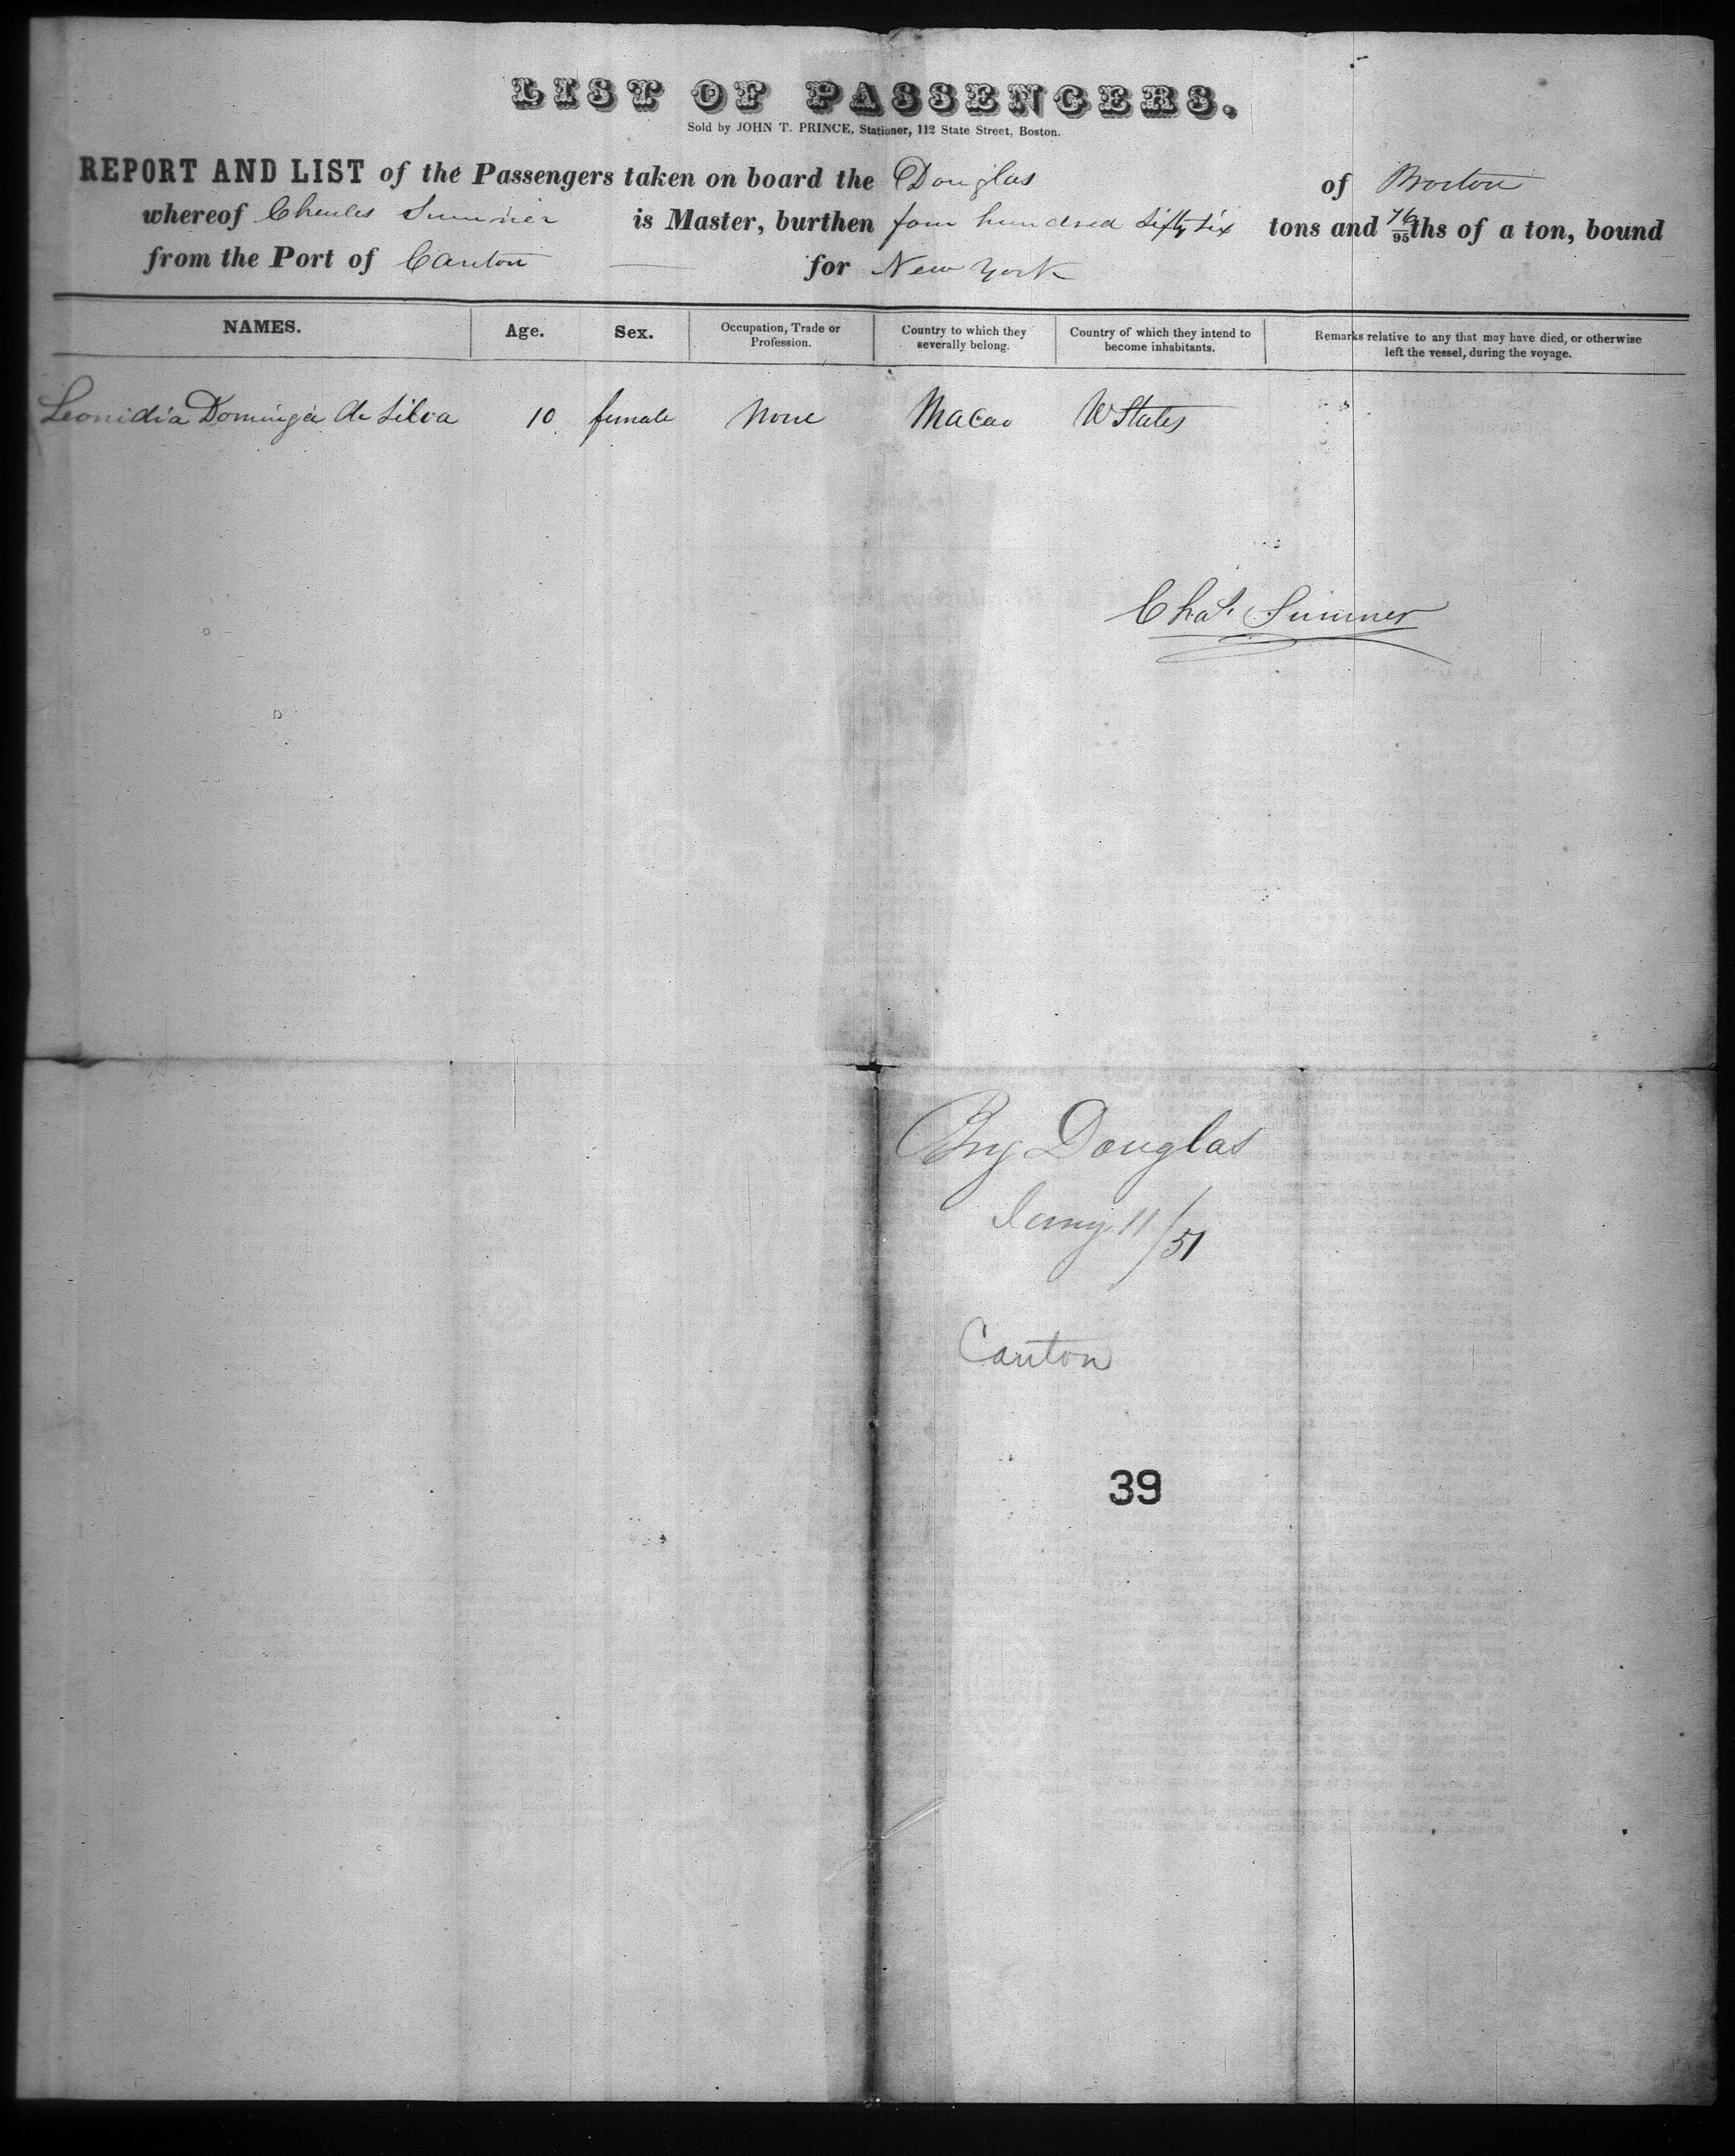 LIST OF PASSENGERS.
Sold by JOHN T. PRINCE, Stationer, 112 State Street, Boston.
REPORT AND LIST of the Passengers taken on board the Douglas of Boston
whereof Charles Sumner is Master, burthen four hundred fifty six tons and 76/95ths of a ton, bound
from the Port of Canton for New York
NAMES. Age. Sex. Occupation, Trade or Profession. Country to which they severally belong. Country of which they intend to become inhabitants. Remarks relative to any that may have died, or otherwise left the vessel, during the voyage.
Leonidia Dominga de Silva 10 female None Macao U States
Chas. Sumner
Douglas
11/51
Canton
39